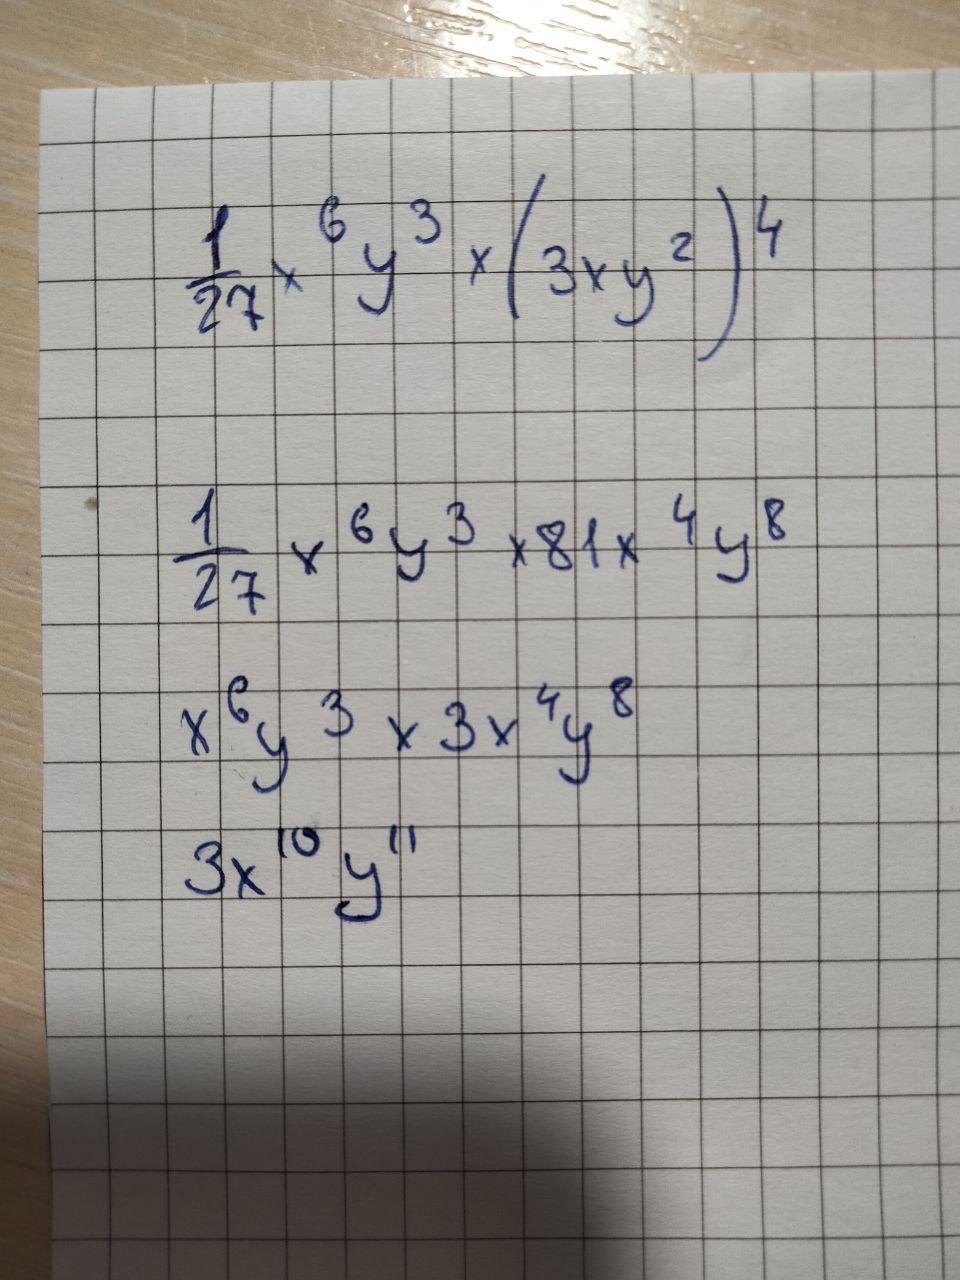 1/27 x⁶y³ × (3xy²)⁴
1/27 x⁶y³ × 81x⁴y⁸
x⁶y³ × 3x⁴y⁸
3x¹⁰y¹¹